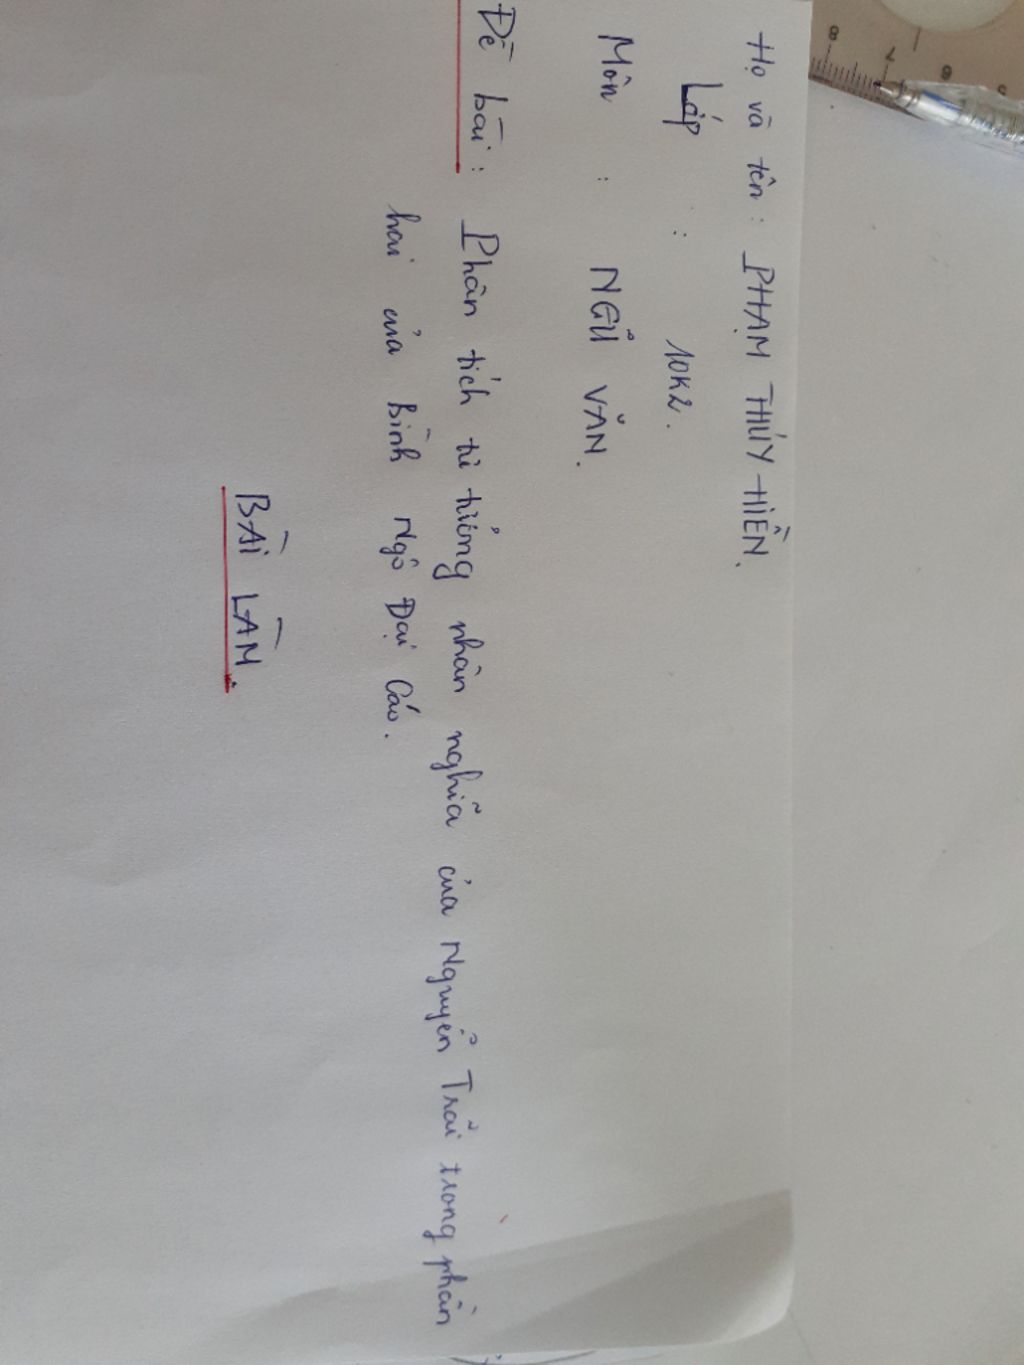 Họ và tên : PHẠM THÚY HIỀN.
Lớp : 10K2.
Môn : NGỮ VĂN.
Đề bài : Phân tích tư tưởng nhân nghĩa của Nguyễn Trãi trong phần
hai của Bình Ngô Đại Cáo.
BÀI LÀM.
8 7 6 5